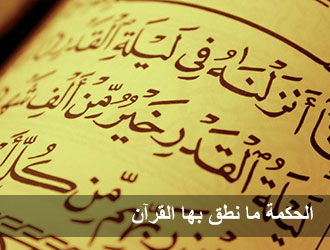 أَنزَلْنَٰهُ فِي لَيْلَةِ ٱلْقَدْرِ
لَيْلَةُ ٱلْقَدْرِ خَيْرٌ مِّنْ أَلْفِ
مِّن كُلِّ
الحكمة ما نطق بها القرآن